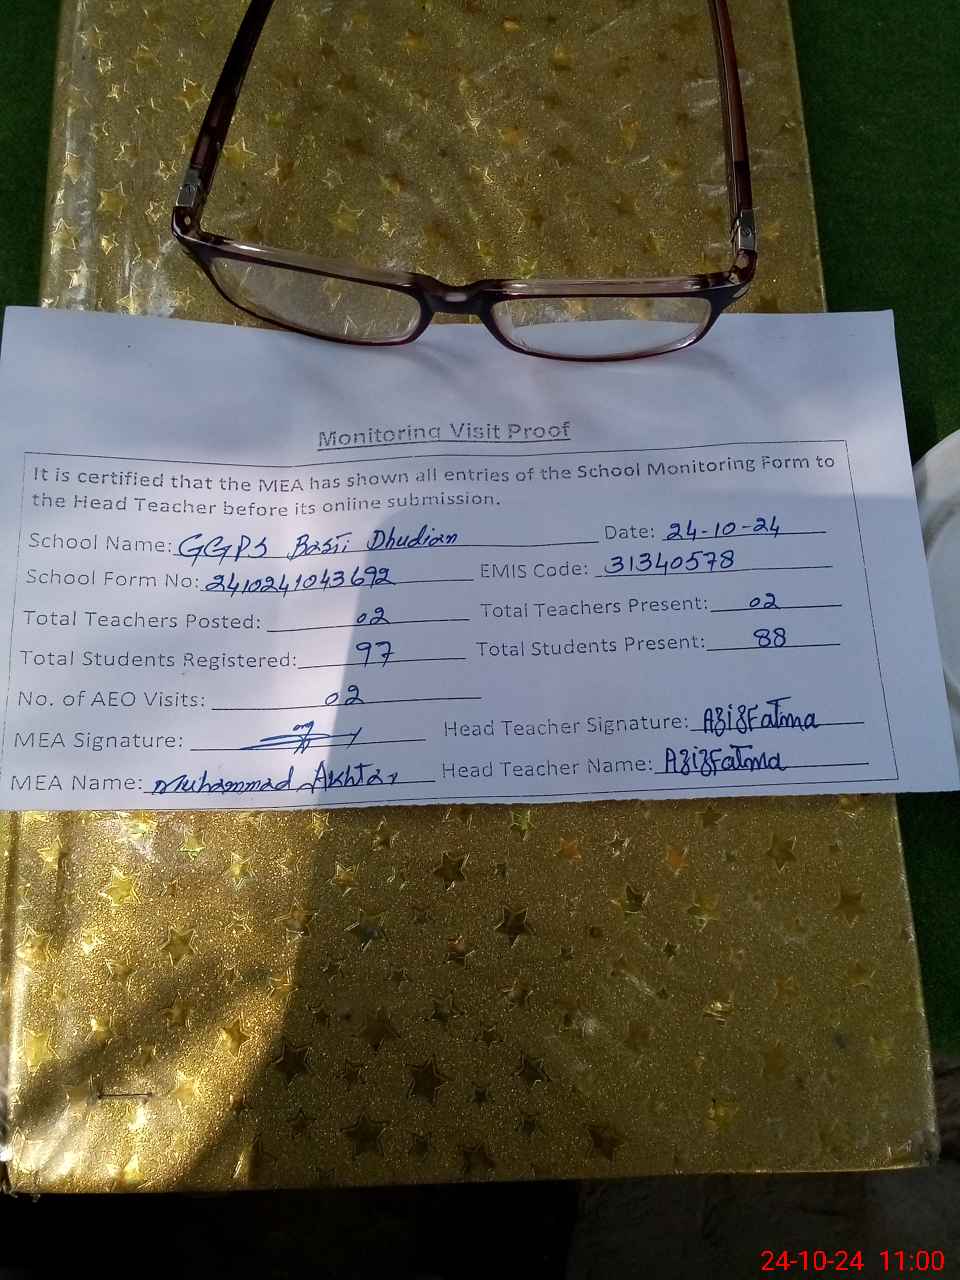 Monitoring Visit Proof
It is certified that the MEA has shown all entries of the School Monitoring Form to
the Head Teacher before its online submission.
School Name: GGPS Basti Dhudian Date: 24-10-24
School Form No: 2410241043692 EMIS Code: 31340578
Total Teachers Posted: 02 Total Teachers Present: 02
Total Students Registered: 97 Total Students Present: 88
No. of AEO Visits: 02
MEA Signature: Head Teacher Signature: AzizFatima
MEA Name: Muhammad Akhtar Head Teacher Name: AzizFatima
24-10-24 11:00